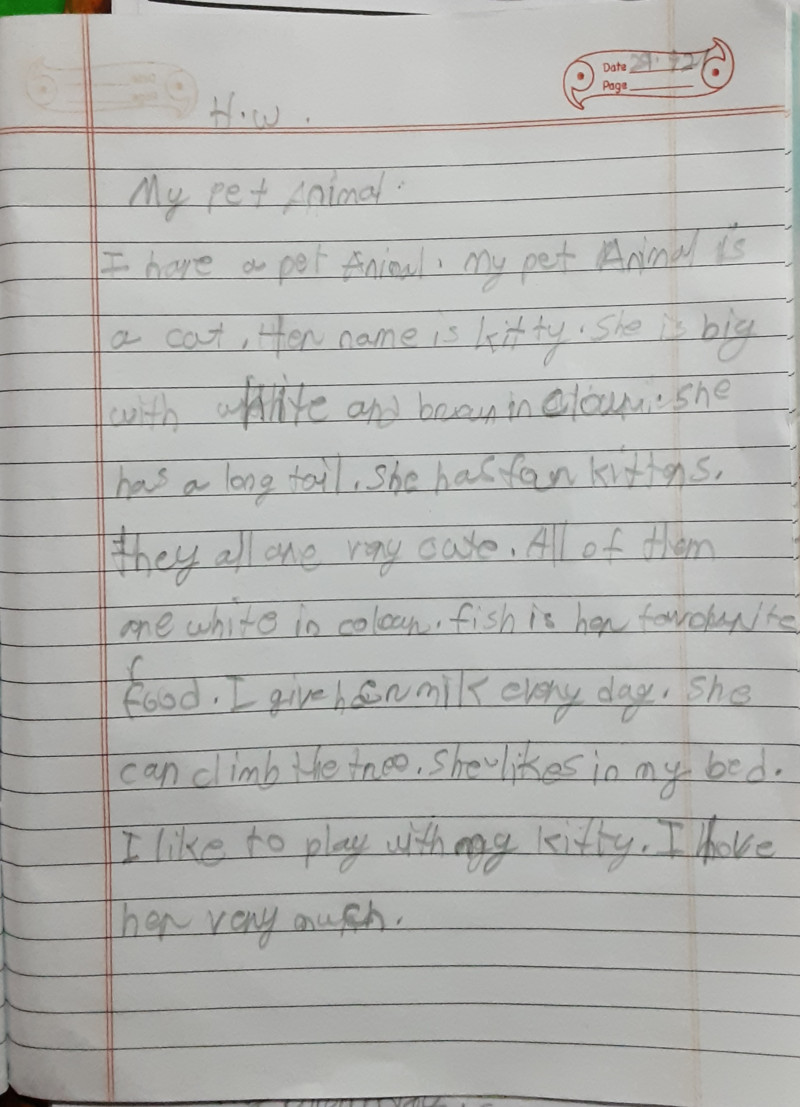 Date 29.
Page
H.W.
My pet Animal.
I have a pet Animal. My pet Animal is
a cat. Her name is kitty. She is big
with white and brown in colour. she
has a long tail. She has four kittens.
they all are very cute. All of them
are white in colour. fish is her favourite
food. I give her milk every day. She
can climb the tree. She likes in my bed.
I like to play with my kitty. I love
her very much.